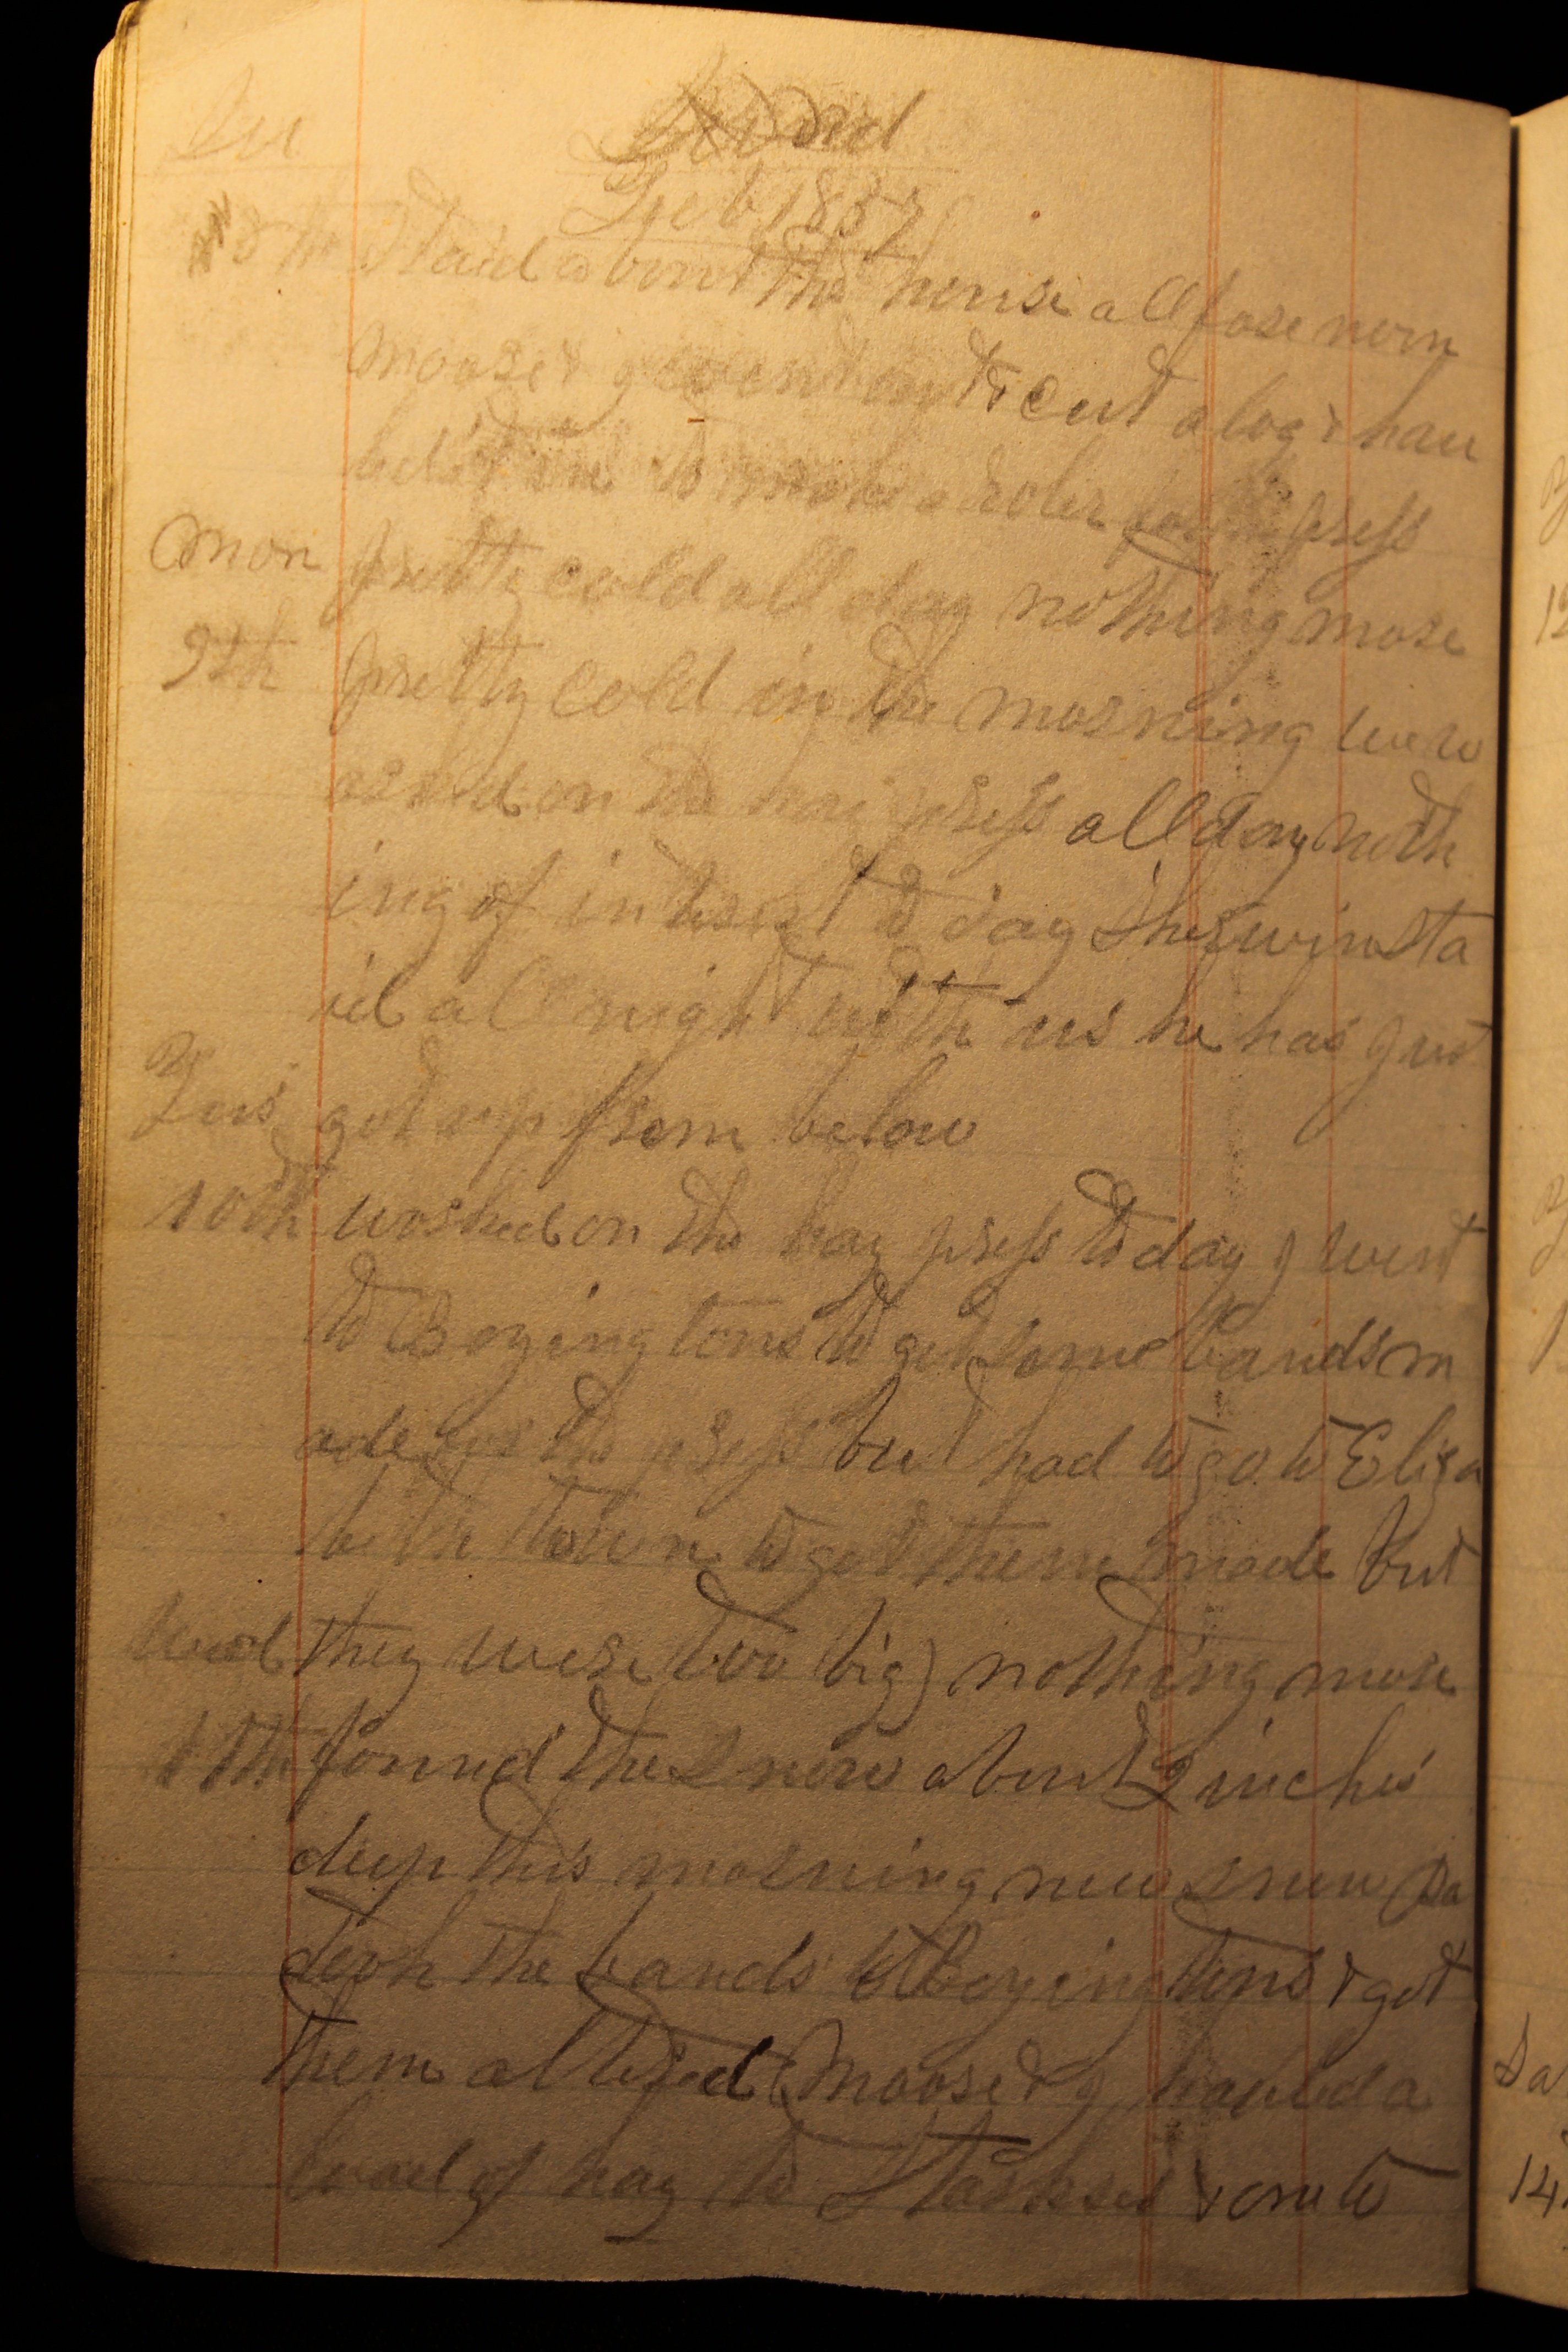 Feb 1857
8th Staid about the house all fore noon
Moore & I went out & cut a log & hau
led it in to make a roler for press
Mon pretty cold all day nothing more
9th pretty cold in the morning we w
orked on the hay press all day noth
ing of interest to day Sherwin sta
id all night with us he has just
Tues got up from below
10th worked on the hay press to day I went
to Boyingtons to get some bands m
ade for the press but had to go to Eliza
beth town to get them made but
Wed they were too big) nothing more
11th found the snow about 2 inches
deep this morning new snow Pa
took the bands to Boyingtons & got
them altered Moore & I hauled a
load of hay to & one to